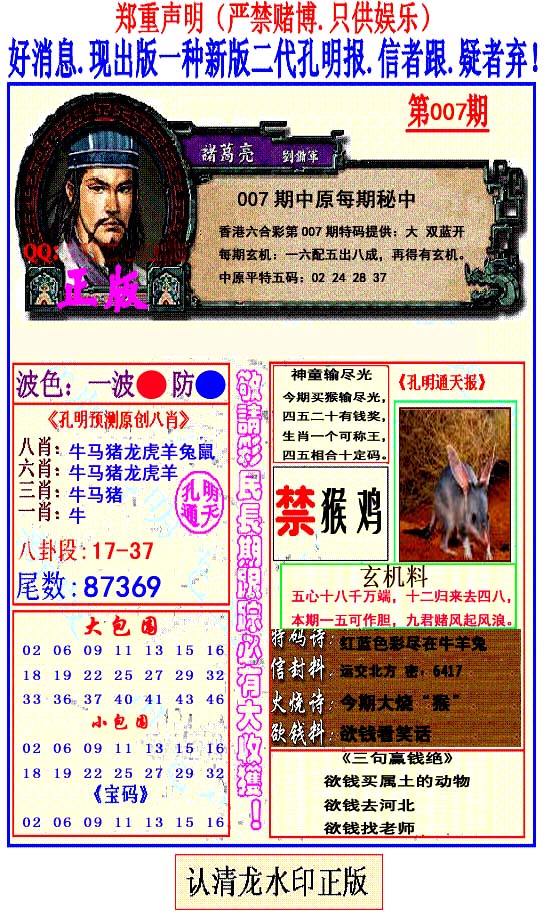 郑重声明（严禁赌博.只供娱乐）
好消息.现出版一种新版二代孔明报.信者跟.疑者弃!
第007期
諸葛亮 劉備軍
007期中原每期秘中
香港六合彩第007期特码提供：大 双蓝开
每期玄机：一六配五出八成，再得有玄机。
中原平特五码：02 24 28 37
QQ:
正版
波色：一波 防
《孔明预测原创八肖》
八肖：牛马猪龙虎羊兔鼠
六肖：牛马猪龙虎羊
三肖：牛马猪
一肖：牛
孔明
通天
八卦段:17-37
尾数:87369
大包围
02 06 09 11 13 15 16
18 19 22 25 27 29 32
33 36 37 40 41 43 46
小包围
02 06 09 11 13 15 16
18 19 22 25 27 29 32
《宝码》
02 06 09 11 13 15 16
敬請彩民長期跟踪必有大收獲！
神童输尽光
今期买猴输尽光，
四五二十有钱奖，
生肖一个可称王，
四五相合十定码。
《孔明通天报》
禁猴鸡
玄机料
五心十八千万端，十二归来去四八，
本期一五可作胆，九君赌风起风浪。
特码诗：红蓝色彩尽在牛羊兔
信封料：运交北方 密，6417
火烧诗：今期大烧“猴”
欲钱料：欲钱看笑话
《三句赢钱绝》
欲钱买属土的动物
欲钱去河北
欲钱找老师
认清龙水印正版